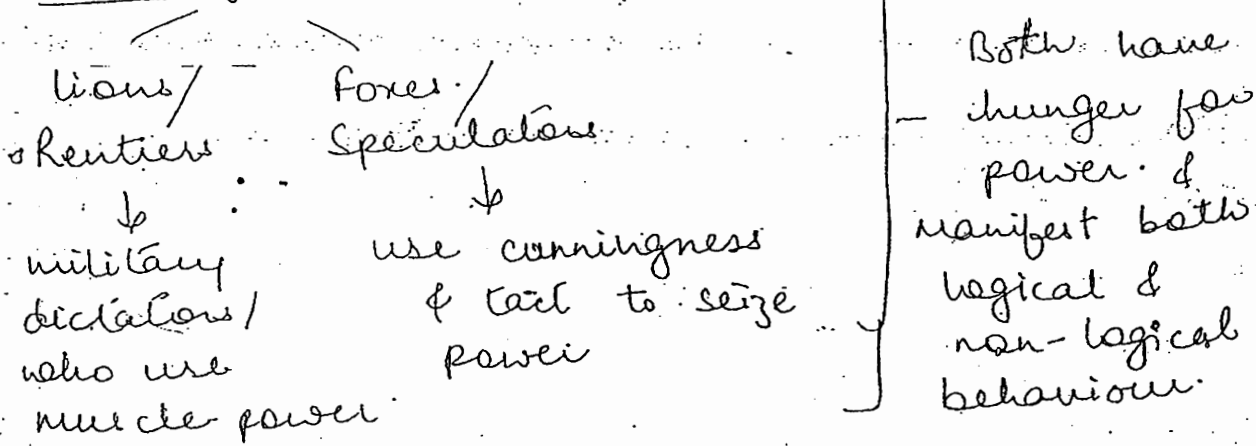 lions/
Rentiers
↓
military
dictators/
who use
muscle power.
Foxes/
Speculators
↓
use cunningness
& tact to seize
power
Both have
– hunger for
power. &
manifest both
logical &
non-logical
behaviour.